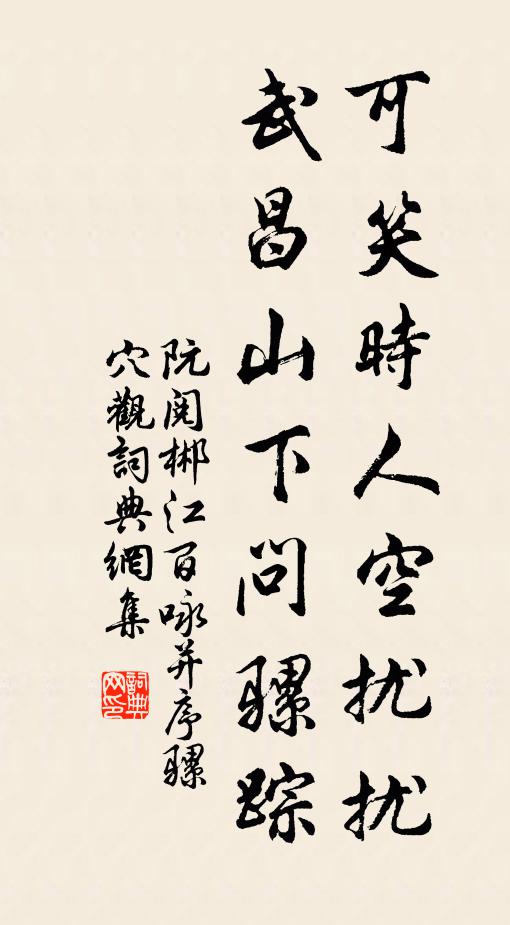 可笑時人空扰扰
武昌山下問騾踪
阮阅郴江百咏并序騾
穴觀詞典網集
詞典网印